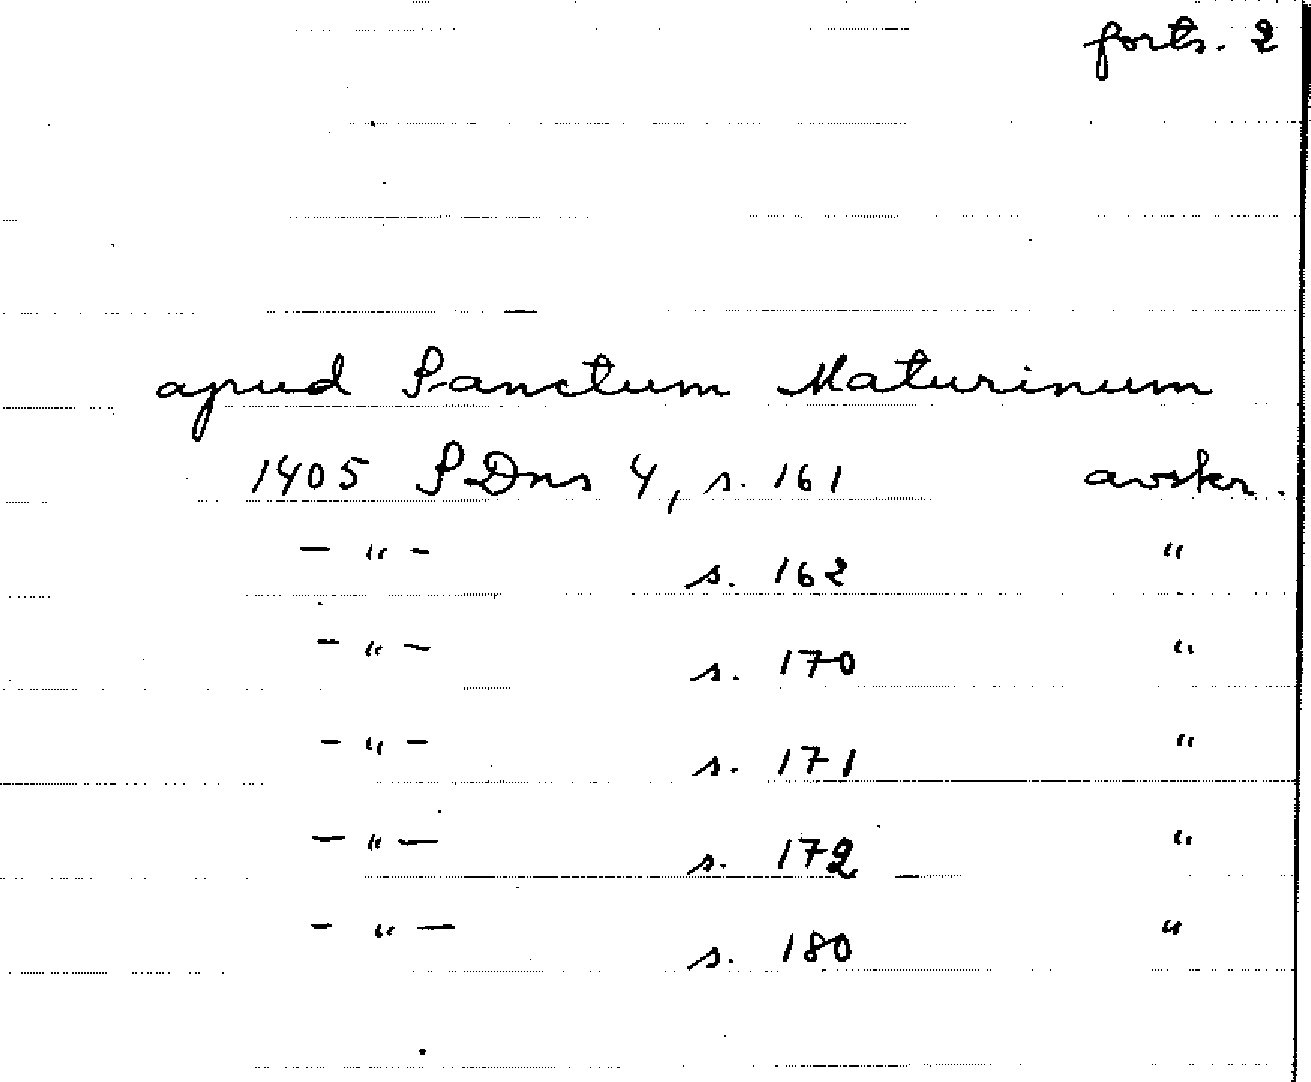 forts. 2
apud Sanctum Maturinum
1405 SDns 4, s. 161 avskr.
– " – s. 162 "
– " – s. 170 "
– " – s. 171 "
– " – s. 172 "
– " – s. 180 "